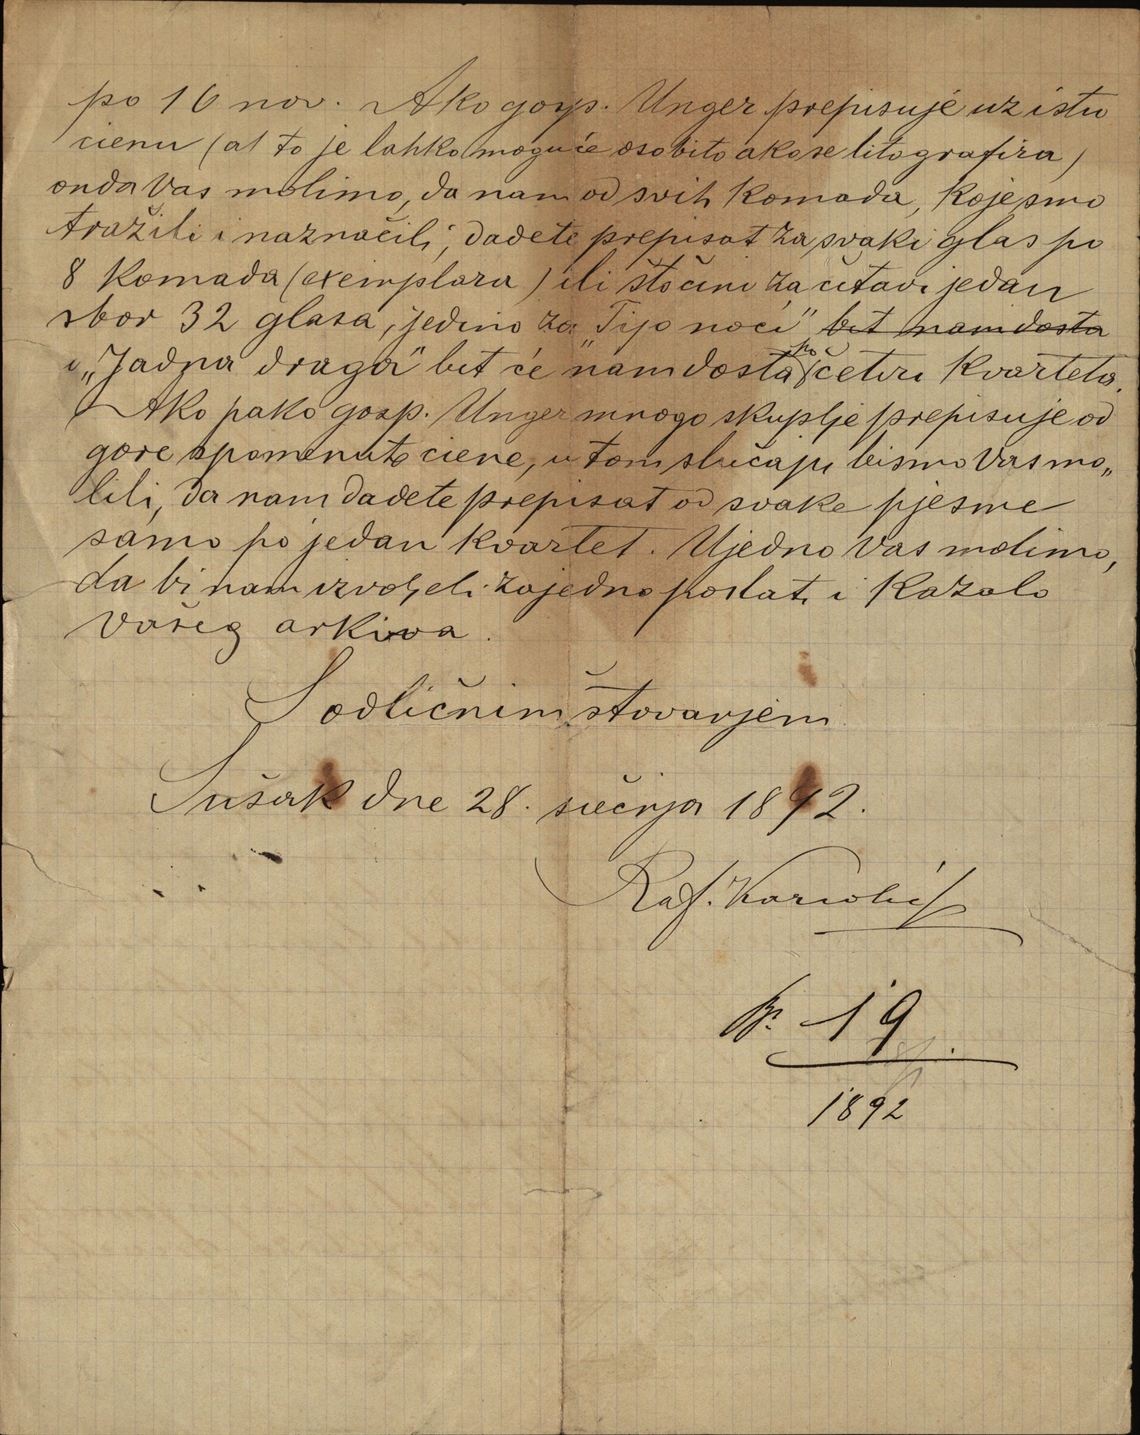 po 10 nov. Ako gosp. Unger prepisuje uz istu
cienu (a to je lahko moguće osobito ako se litografira)
onda Vas molimo, da nam od svih komada, koje smo
tražili i naznačili, dadete prepisat za svaki glas po
8 komada (exemplara) ili što čini za čitavi jedan
sbor 32 glasa, jedino za „Tijo noći" bit nam dosta
i „Jadna draga" bit će nam dosta po četiri kvarteta.
Ako pako gosp. Unger mnogo skuplje prepisuje od
gore spomenute ciene, u tom slučaju bismo Vas mo„
lili, da nam dadete prepisat od svake pjesme
samo po jedan kvartet. Ujedno Vas molimo,
da bi nam izvoljeli zajedno poslati i kazalo
Vašeg arkiva.
S odličnim štovanjem
Sušak dne 28. siečnja 1892.
Raf.
19
1892